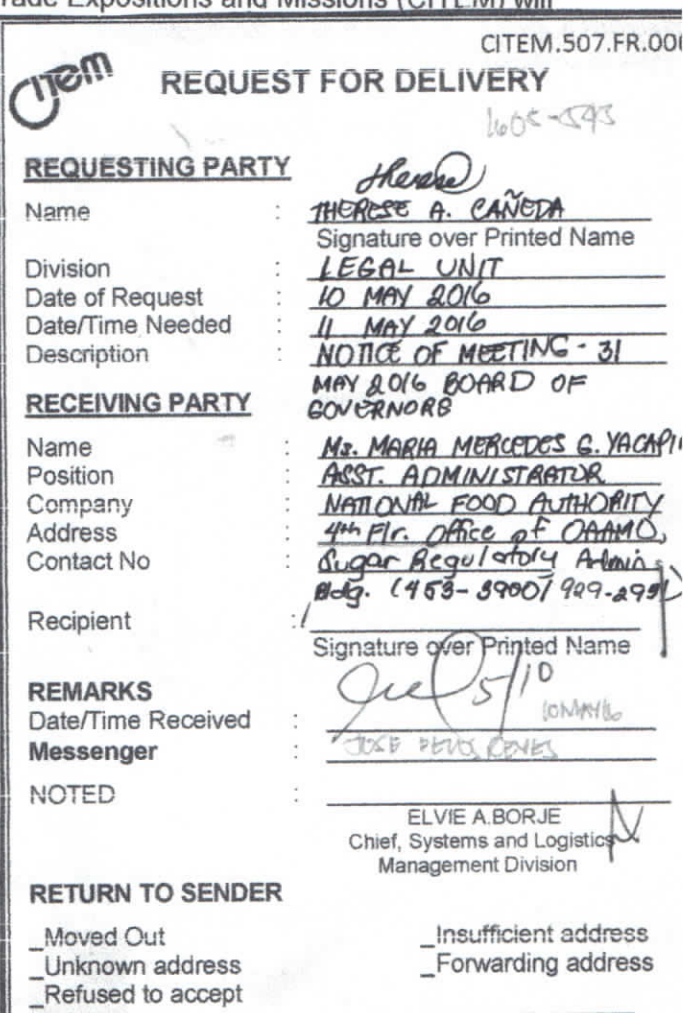 Trade Expositions and Missions (CITEM) will
CITEM.507.FR.00
CITEM
REQUEST FOR DELIVERY
1605-543
REQUESTING PARTY
Therese
Name : THERESE A. CAÑEDA
Signature over Printed Name
Division : LEGAL UNIT
Date of Request : 10 MAY 2016
Date/Time Needed : 11 MAY 2016
Description : NOTICE OF MEETING - 31
MAY 2016 BOARD OF
GOVERNORS
RECEIVING PARTY
Name : Ms. MARIA MERCEDES G. YACAPI
Position : ASST. ADMINISTRATOR
Company : NATIONAL FOOD AUTHORITY
Address : 4th Flr. Office of OAAMO,
Contact No : Sugar Regulatory Admin.
Bldg. (453-3900/ 929-
Recipient :
Signature over Printed Name
REMARKS
5/10
Date/Time Received : 10MAY16
Messenger : JOSE REYES
NOTED :
ELVIE A.BORJE
Chief, Systems and Logistics
Management Division
RETURN TO SENDER
_Moved Out _Insufficient address
_Unknown address _Forwarding address
_Refused to accept